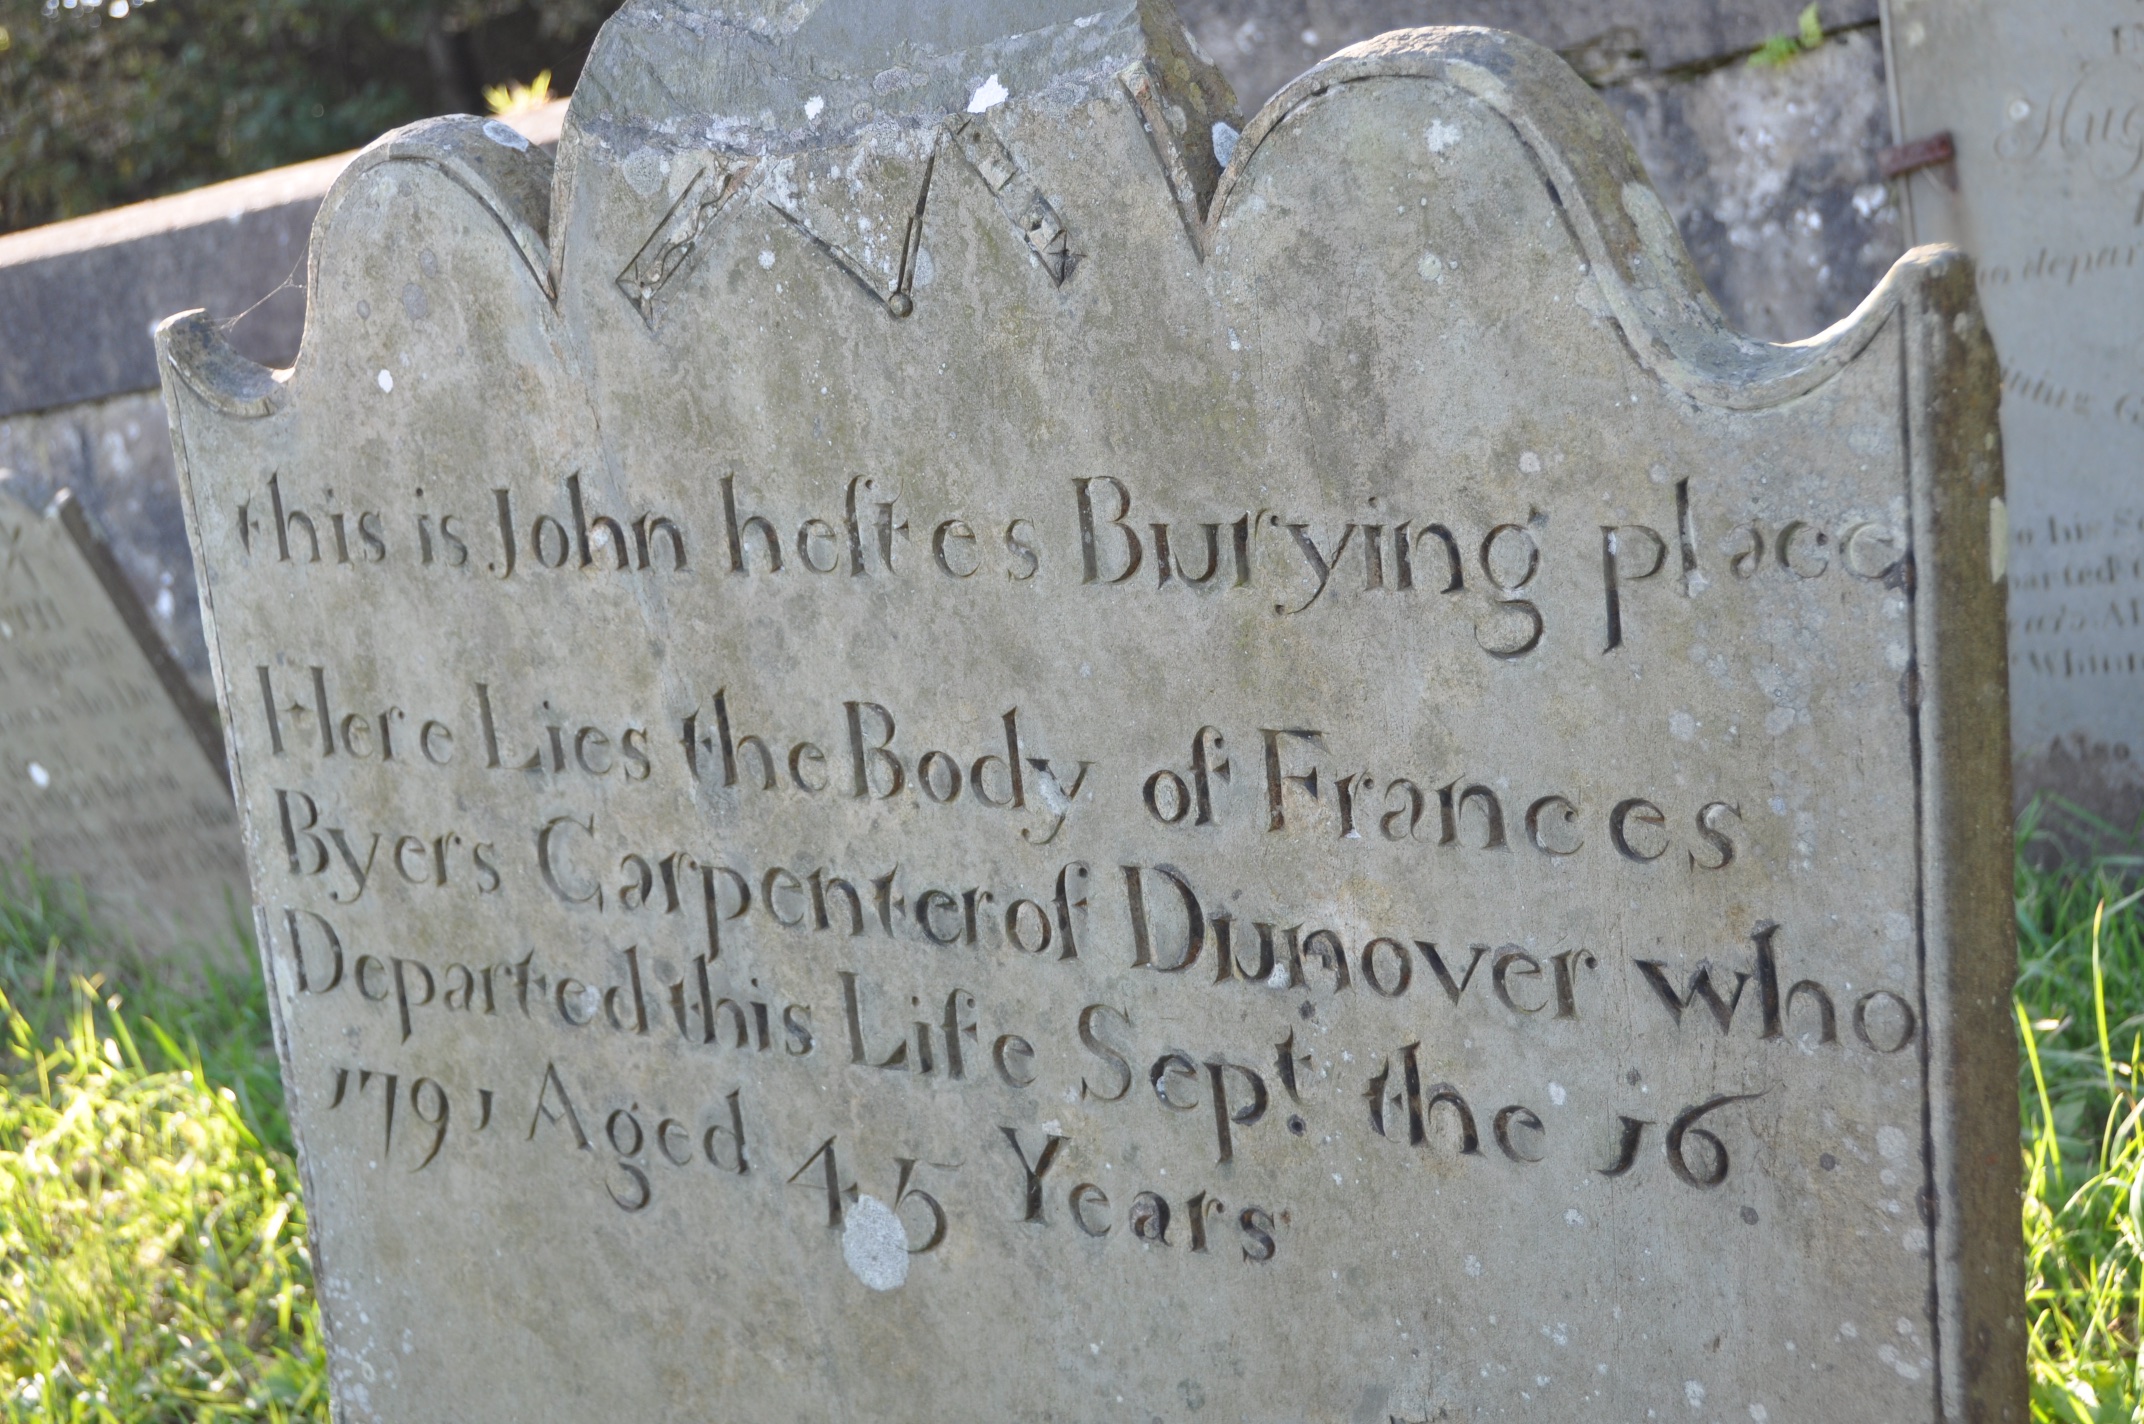 this is John heſtes Burying place
Here Lies the Body of Frances
Byers Carpenter of Dunover who
Departed this Life Sept. the 16
1791 Aged 45 Years
Hug
depar
his
arted
Also